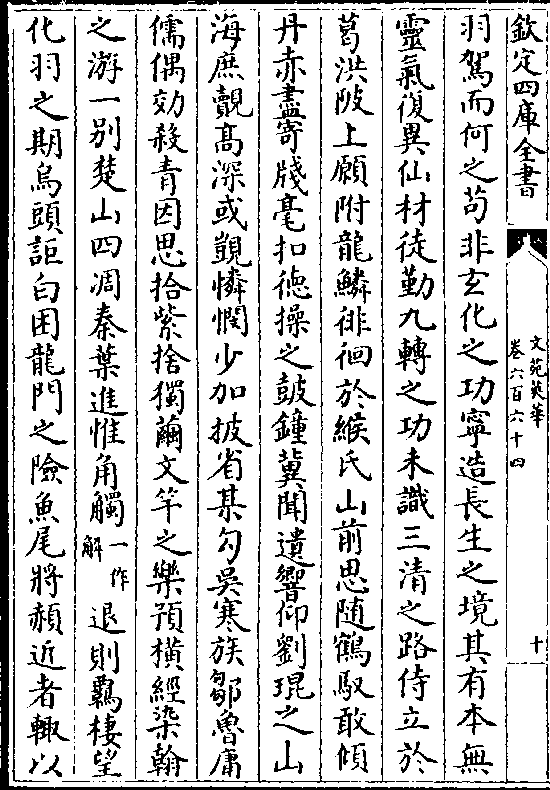 欽定四庫全書
文苑英華
卷六百六十四
十
羽駕而何之苟非玄化之功寧造長生之境其有本無
靈氣復異仙材徒勤九轉之功未識三清之路侍立於
葛洪陂上願附龍鱗徘徊於緱氏山前思随鶴馭敢傾
丹赤盡寄牋毫扣徳操之皷鐘冀聞遺響仰劉琨之山
海庶覿髙深或覬憐憫少加披省某勾吳寒族鄒魯庸
儒偶効殺青因思拾紫捨獨繭文竿之樂預横經染翰
之游一别楚山四凋秦葉進惟角觸一作解退則羇棲望
化羽之期烏頭詎白困龍門之險魚尾將赬近者輙以